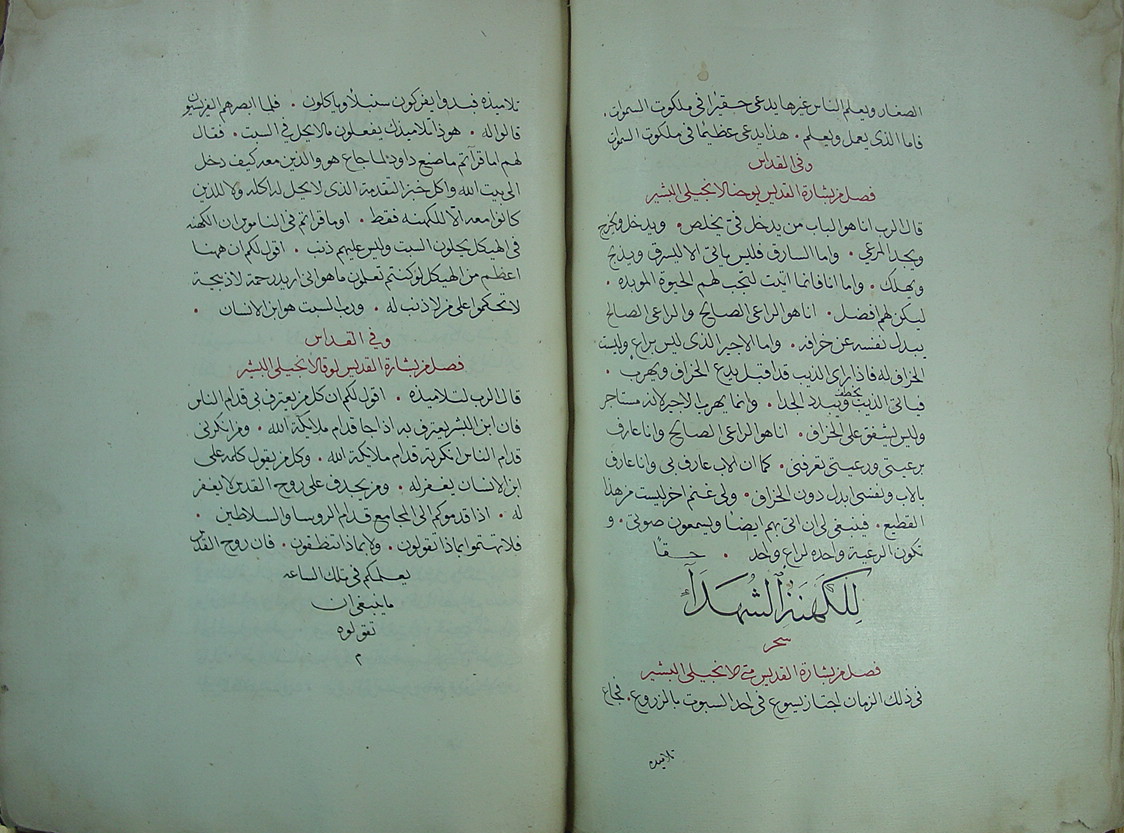 الصغار ويعلم الناس غيرها يدعى حقيرًا في ملكوت السموات.
فاما الذى يعمل ويعلم. هذا يدعى عظيمًا في ملكوت السموات
وفي القداس
فصل من بشارة القديس يوحنا الانجيلي البشير
قال الرب انا هو الباب من يدخل في يخلص. ويدخل ويخرج
ويجد المرعي. واما السارق فليس ياتي الا ليسرق ويذبح
ويهلك. واما انا فانما اتيت لتجب لهم الحيوة الموبده.
ليكن لهم افضل. انا هو الراعي الصالح والراعي الصالح
يبدل نفسه عن خرافه. واما الاجير الذى ليس براع وليست
الخراف له فاذا راى الذيب قد اقبل يدع الخراف ويهرب.
فياتي الذيب ويخطف ويبدد الجدا. وانما يهرب الاجير لانه مستاجر
وليس يشفق على الخراف. انا هو الراعي الصالح وانا عارف
برعيتي ورعيتي تعرفني. كما ان الاب عارف بي وانا عارف
بالاب ونفسي ابدل دون الخراف. ولي غنم اخر ليست من هذا
القطيع. فينبغي لي ان اتي بهم ايضًا ويسمعون صوتي. و
تكون الرعية واحده لراع واحد. حقًا
للكهنة الشهداء
سحر
فصل من بشارة القديس متى الانجيلي البشير
في ذلك الزمان اجتاز يسوع في احد السبوت بالزروع. فجاع
تلاميذه
تلاميذه فبدوا يفركون سنبلًا وياكلون. فلما ابصرهم الفريسيون
قالوا له. هوذا تلاميذك يفعلون ما لا يحل في السبت. فقال
لهم اما قراتم ما صنع داود لما جاع هو والذين معه كيف دخل
الى بيت الله واكل خبز التقدمة الذى لا يحل له اكله ولا للذين
كانوا معه الّا للكهنه فقط. اوما قراتم في الناموس ان الكهنه
في الهيكل يحلون السبت وليس عليهم ذنب. اقول لكم ان ههنا
اعظم من الهيكل لو كنتم تعلمون ما هو اني اريد رحمة لا ذبيحة
لا تحكموا على من لا ذنب له. ورب السبت هو ابن الانسان.
وفي القداس
فصل من بشارة القديس لوقا الانجيلي البشير
قال الرب لتلاميذه. اقول لكم ان كل من يعترف بي قدام الناس
فان ابن البشر يعترف به اذا جا قدام ملايكة الله. ومن انكرني
قدام الناس انكرته قدام ملايكة الله. وكل من يقول كلمه على
ابن الانسان يغفر له. ومن يجدف على روح القدس لا يغفر
له. اذا قدموكم الى المجامع قدام الروسا والسلاطين.
فلا تهتموا بماذا تقولون. ولا بماذا تنطقون. فان روح القدس
يعلمكم في تلك الساعه
ما ينبغي ان
تقولوه
م